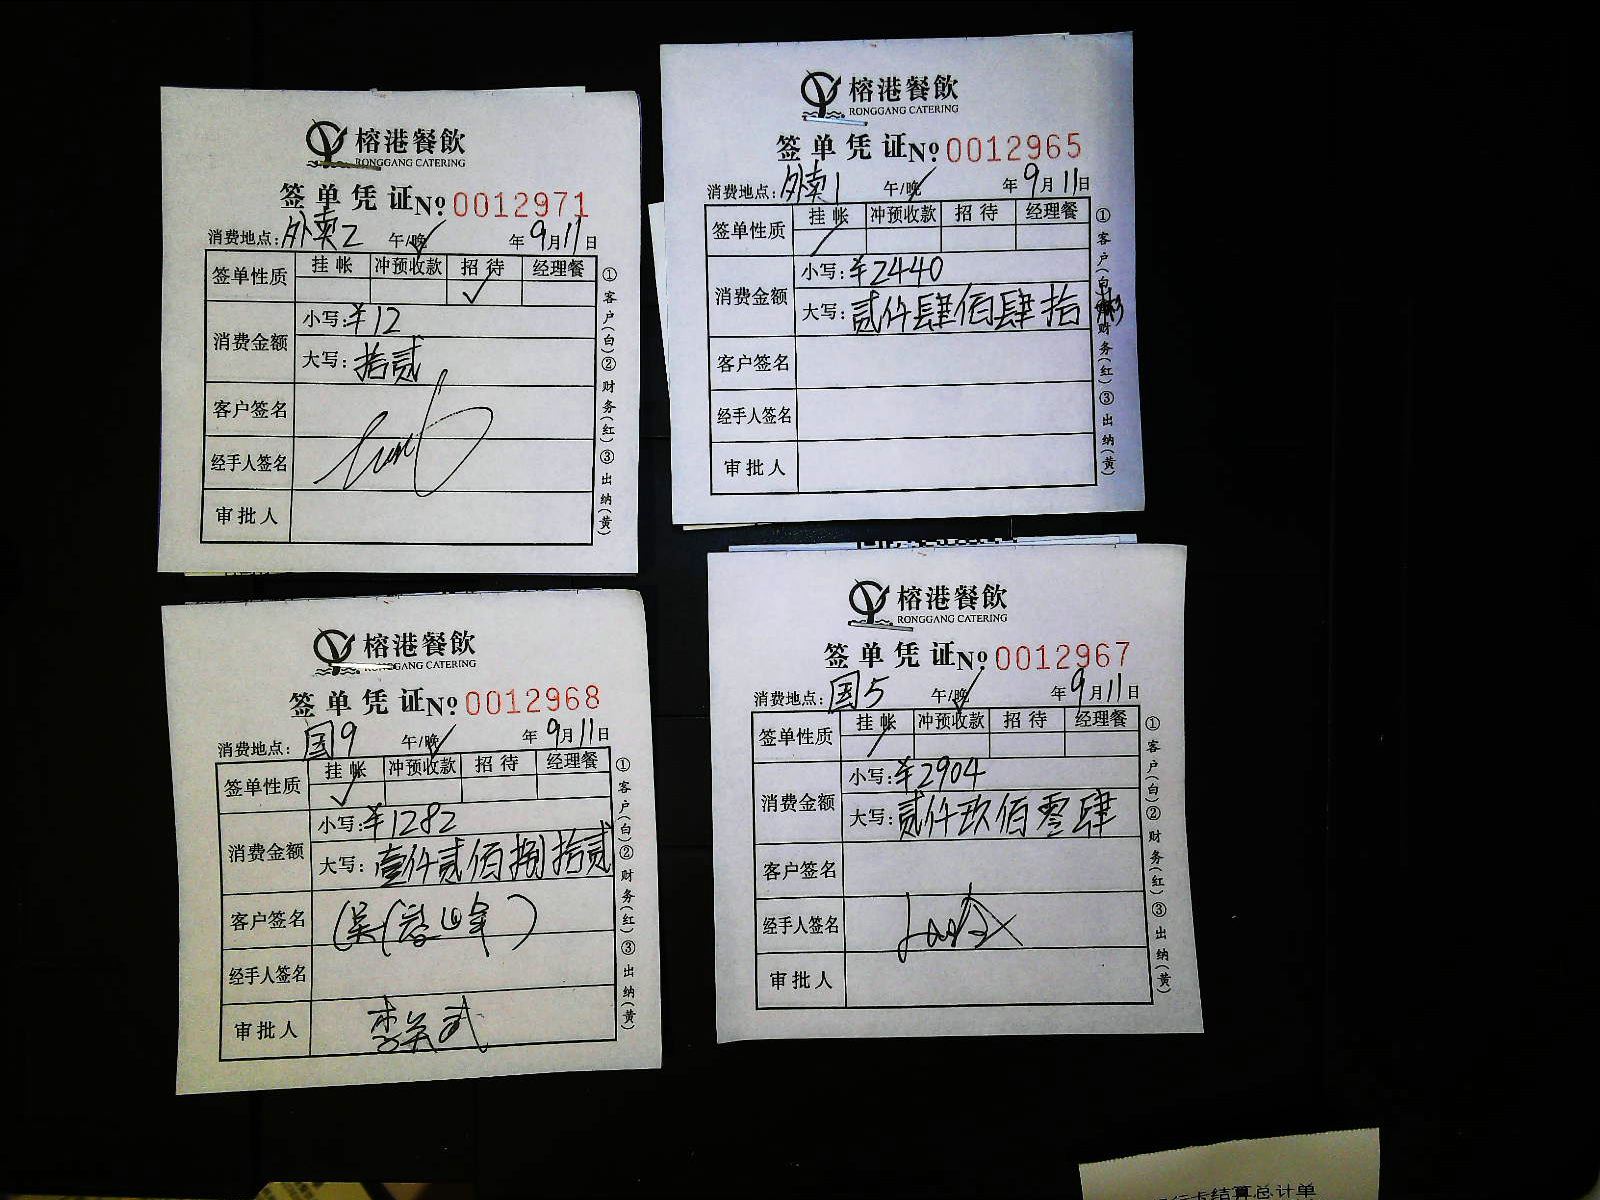 榕港餐飲
RONGGANG CATERING
签单凭证 Nº 0012971
消费地点: 外卖2 午/晚 年 9月11日
签单性质 挂帐 冲预收款 招待 经理餐
✓
消费金额
小写: ¥12
大写: 拾贰
客户签名
经手人签名
审批人
①客户(白)②财务(红)③出纳(黄)
榕港餐飲
RONGGANG CATERING
签单凭证 Nº 0012965
消费地点: 外卖1 午/晚 年 9月11日
签单性质 挂帐 冲预收款 招待 经理餐
消费金额
小写: ¥2440
大写: 贰仟肆佰肆拾
客户签名
经手人签名
审批人
①客户(白) 财务(红)③出纳(黄)
榕港餐飲
GANG CATERING
签单凭证 Nº 0012968
消费地点: 国9 午/晚 年 9月11日
签单性质 挂帐 冲预收款 招待 经理餐
✓
消费金额
小写: ¥1282
大写: 壹仟贰佰捌拾贰
客户签名
经手人签名
审批人 李英武
①客户(白)②财务(红)③出纳(黄)
榕港餐飲
RONGGANG CATERING
签单凭证 Nº 0012967
消费地点: 国5 午/晚 年 9月11日
签单性质 挂帐 冲预收款 招待 经理餐
消费金额
小写: ¥2904
大写: 贰仟玖佰零肆
客户签名
经手人签名
审批人
①客户(白)②财务(红)③出纳(黄)
行卡结算总计单